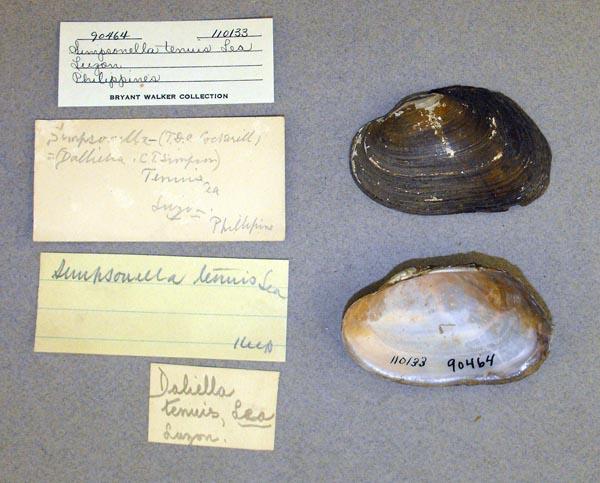 90464 110133
Simpsonella tenuis Lea
Luzon
Philippines
BRYANT WALKER COLLECTION
Simpsonella – (T.D.A. Cockerell)
=(Dalliella. C.T. Simpson)
Tenuis
Lea
Luzon.
Phillipine
Simpsonella tenuis Lea
Daliella
tenuis, Lea
Luzon.
110133 90464